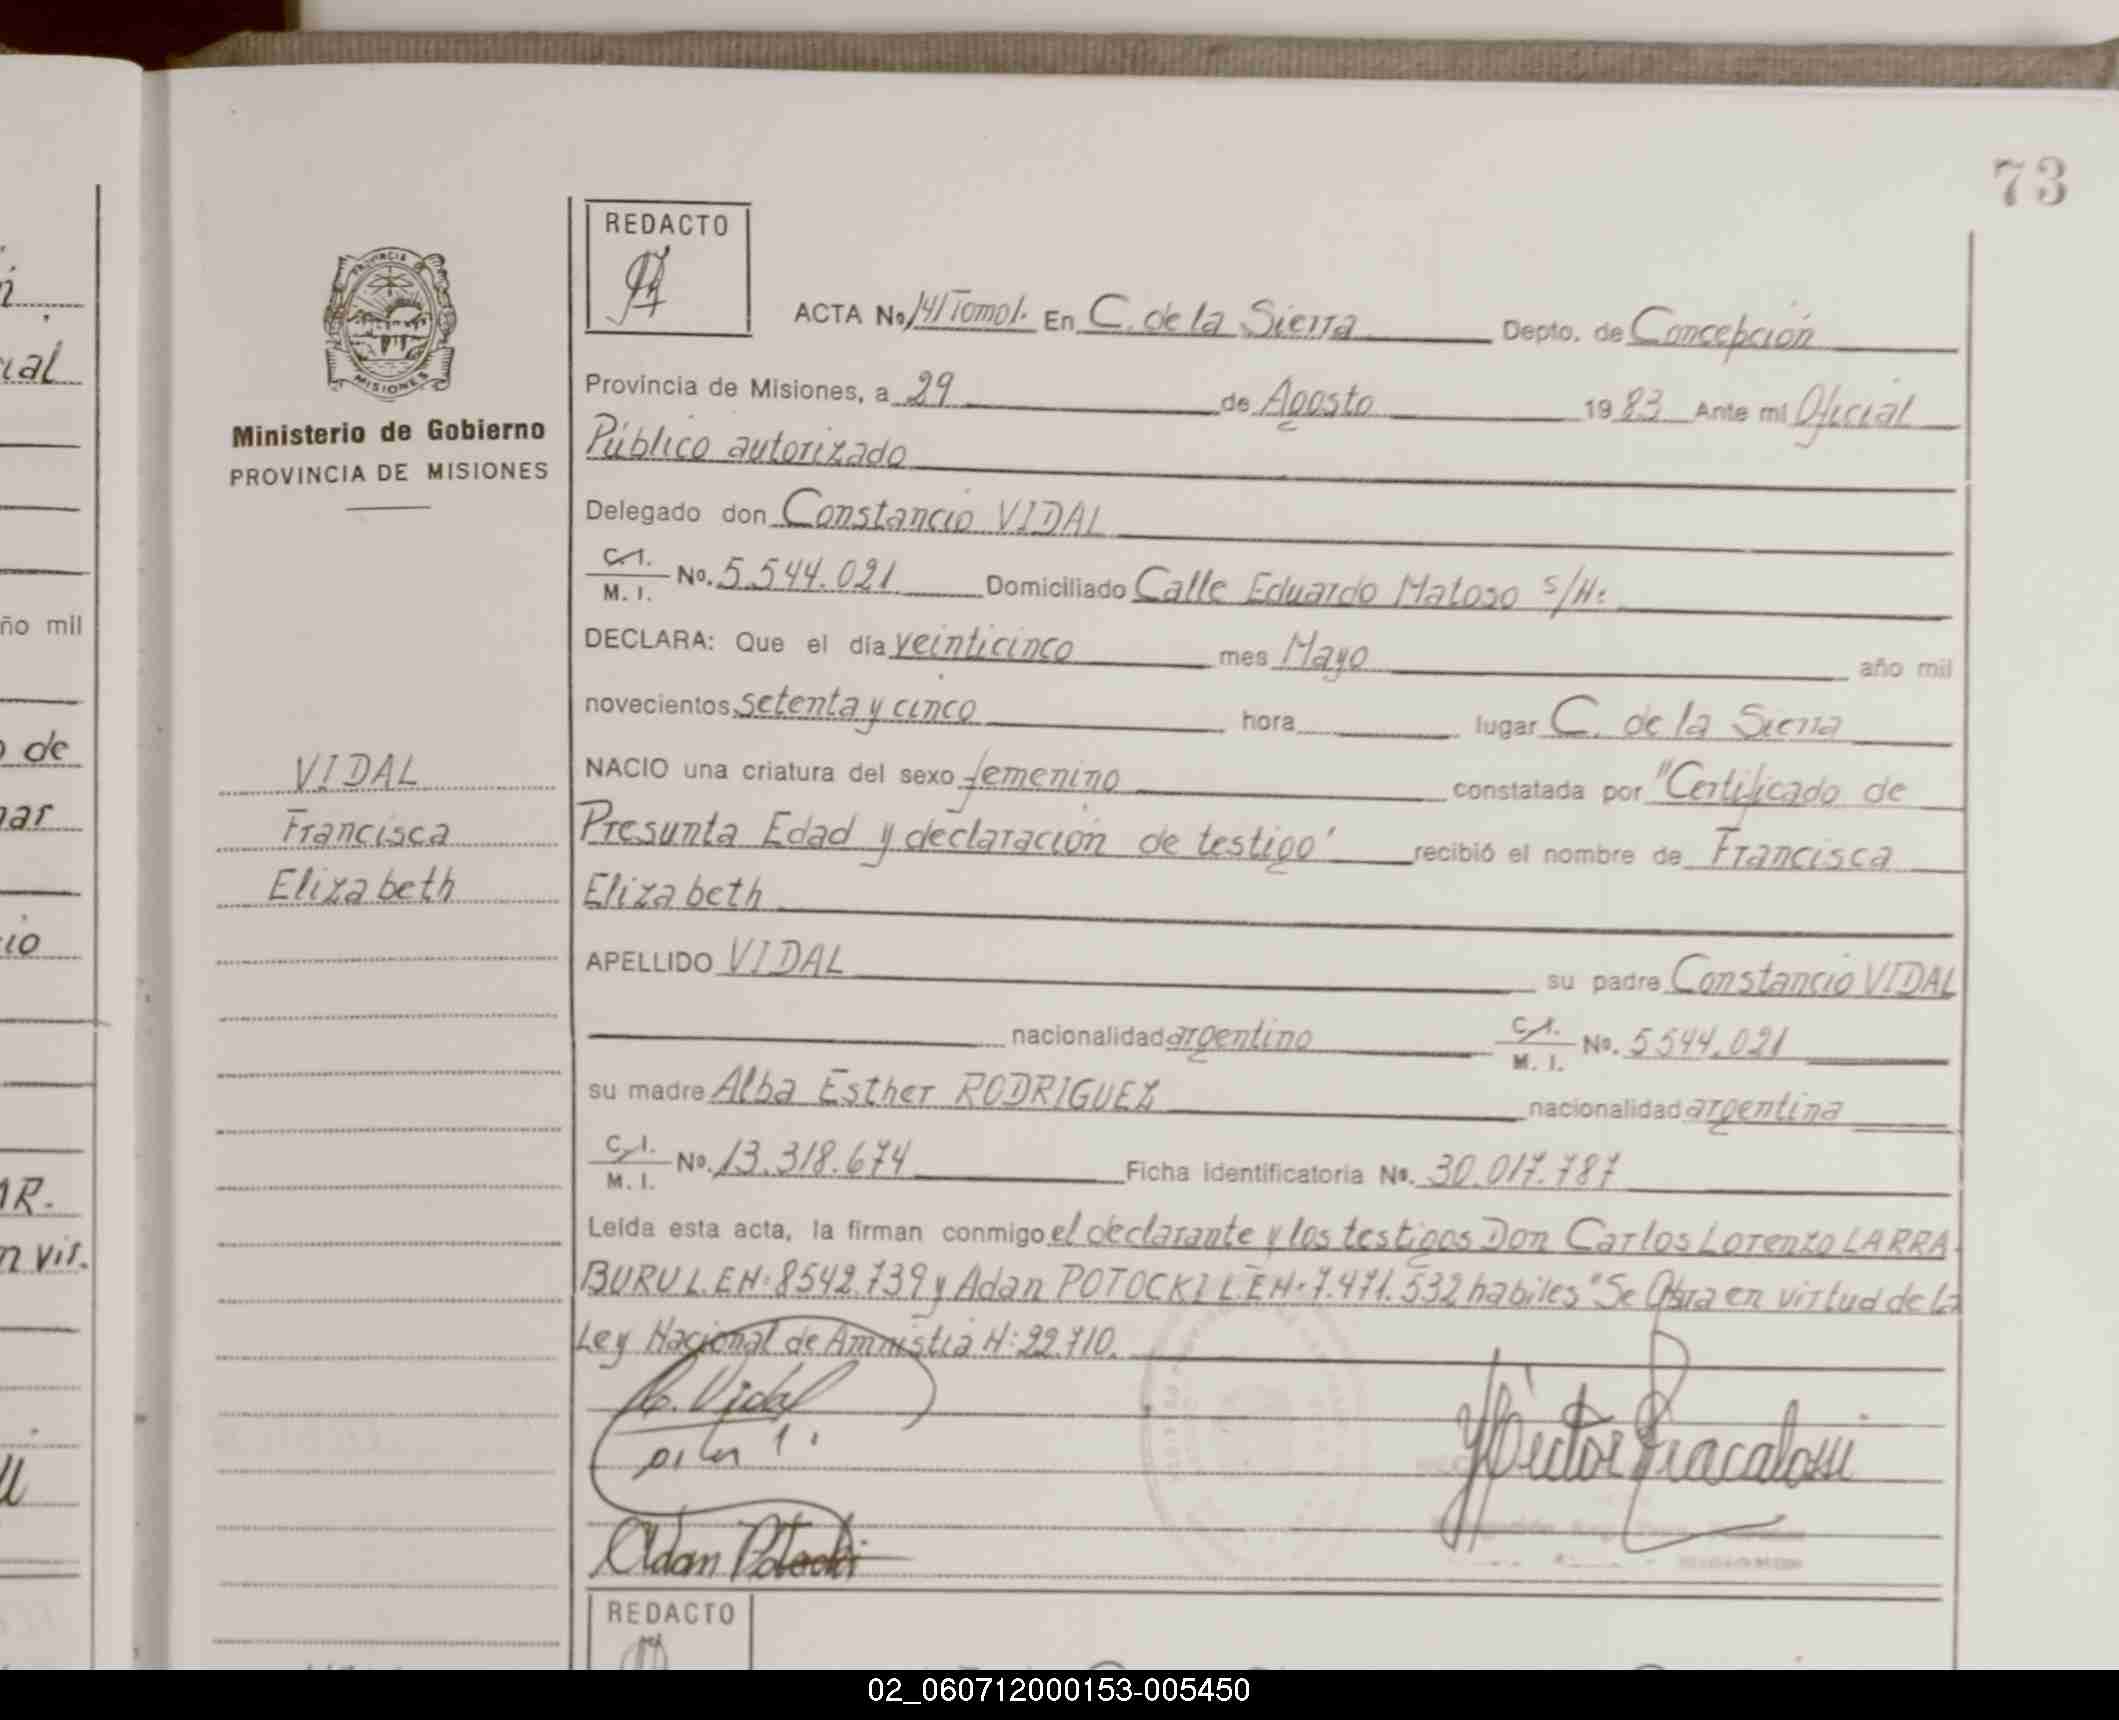 73
REDACTO
PROVINCIA DE
MISIONES
Ministerio de Gobierno
PROVINCIA DE MISIONES
ACTA No 141 Tomo I. En C. de la Sierra Depto. de Concepción
Provincia de Misiones, a 29 de Agosto 1983 Ante mi Oficial
Público autorizado
Delegado don Constancio VIDAL
C.I. M.I. No. 5.544.021 Domiciliado Calle Eduardo Matoso S/Nº
DECLARA: Que el día veinticinco mes Mayo año mil
novecientos setenta y cinco hora lugar C. de la Sierra
NACIO una criatura del sexo femenino constatada por "Certificado de
Presunta Edad y declaración de testigo" recibió el nombre de Francisca
Elizabeth
APELLIDO VIDAL su padre Constancio VIDAL
nacionalidad argentino C.I. M.I. No. 5544.021
su madre Alba Esther RODRIGUEZ nacionalidad argentina
C.I. M.I. No. 13.318.674 Ficha identificatoria No. 30.017.787
Leída esta acta, la firman conmigo el declarante y los testigos Don Carlos Lorenzo LARRA
BURU L.E.Nº 8542.739 y Adan POTOCKI L.E.Nº 7.471.532 habiles "Se Obra en virtud de la
Ley Nacional de Amnistia Nº 22.710.
VIDAL
Francisca
Elizabeth
C. Vidal
Adan Potocki
REDACTO
ño mil
de
02_060712000153-005450